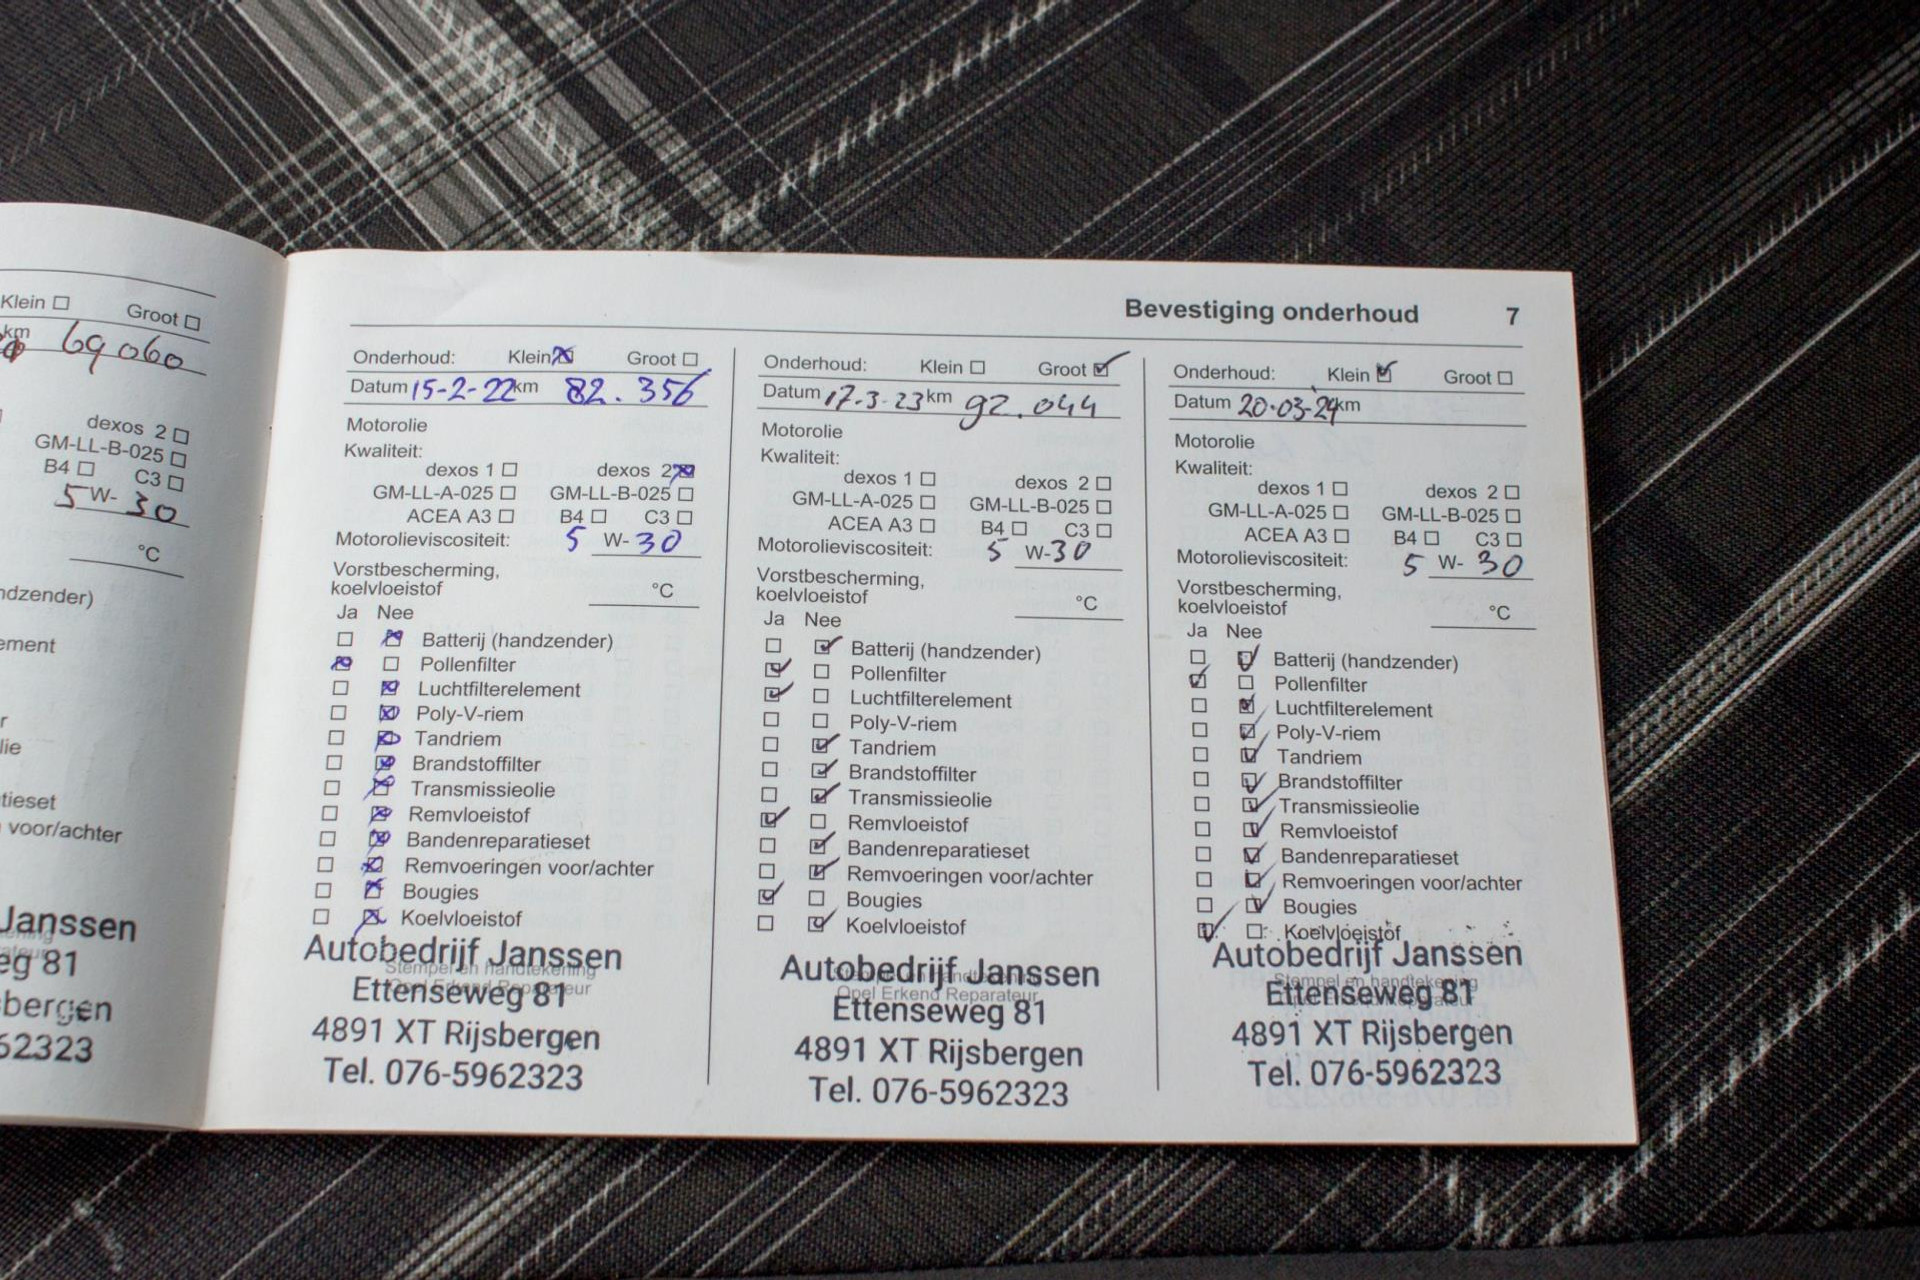 Klein ☐ Groot ☐
km 69060
dexos 2 ☐
GM-LL-B-025 ☐
B4 ☐ C3 ☐
5 W- 30
°C
ndzender)
ement
r
lie
tieset
voor/achter
Janssen
eg 81
sbergen
62323
Bevestiging onderhoud 7
Onderhoud: Klein ☒ Groot ☐
Datum 15-2-22 km 82.356
Motorolie
Kwaliteit:
dexos 1 ☐ dexos 2 ☒
GM-LL-A-025 ☐ GM-LL-B-025 ☐
ACEA A3 ☐ B4 ☐ C3 ☐
Motorolieviscositeit: 5 W- 30
Vorstbescherming,
koelvloeistof °C
Ja Nee
☐ ☒ Batterij (handzender)
☒ ☐ Pollenfilter
☐ ☒ Luchtfilterelement
☐ ☒ Poly-V-riem
☐ ☒ Tandriem
☐ ☒ Brandstoffilter
☐ ☒ Transmissieolie
☐ ☒ Remvloeistof
☐ ☒ Bandenreparatieset
☐ ☒ Remvoeringen voor/achter
☐ ☒ Bougies
☐ ☒ Koelvloeistof
Autobedrijf Janssen
Stempel en handtekening
Ettenseweg 81
Opel Erkend Reparateur
4891 XT Rijsbergen
Tel. 076-5962323
Onderhoud: Klein ☐ Groot ☑
Datum 17-3-23 km 92.044
Motorolie
Kwaliteit:
dexos 1 ☐ dexos 2 ☐
GM-LL-A-025 ☐ GM-LL-B-025 ☐
ACEA A3 ☐ B4 ☐ C3 ☐
Motorolieviscositeit: 5 W-30
Vorstbescherming,
koelvloeistof °C
Ja Nee
☐ ☑ Batterij (handzender)
☑ ☐ Pollenfilter
☑ ☐ Luchtfilterelement
☐ ☐ Poly-V-riem
☐ ☑ Tandriem
☐ ☑ Brandstoffilter
☐ ☑ Transmissieolie
☑ ☐ Remvloeistof
☐ ☑ Bandenreparatieset
☐ ☑ Remvoeringen voor/achter
☑ ☐ Bougies
☐ ☑ Koelvloeistof
Autobedrijf Janssen
Stempel en handtekening
Opel Erkend Reparateur
Ettenseweg 81
4891 XT Rijsbergen
Tel. 076-5962323
Onderhoud: Klein ☑ Groot ☐
Datum 20-03-24 km
Motorolie
Kwaliteit:
dexos 1 ☐ dexos 2 ☐
GM-LL-A-025 ☐ GM-LL-B-025 ☐
ACEA A3 ☐ B4 ☐ C3 ☐
Motorolieviscositeit: 5 W- 30
Vorstbescherming,
koelvloeistof °C
Ja Nee
☐ ☑ Batterij (handzender)
☑ ☐ Pollenfilter
☐ ☑ Luchtfilterelement
☐ ☑ Poly-V-riem
☐ ☑ Tandriem
☐ ☑ Brandstoffilter
☐ ☑ Transmissieolie
☐ ☑ Remvloeistof
☐ ☑ Bandenreparatieset
☐ ☑ Remvoeringen voor/achter
☐ ☑ Bougies
☑ ☐ Koelvloeistof
Autobedrijf Janssen
Stempel en handtekening
Ettenseweg 81
4891 XT Rijsbergen
Tel. 076-5962323